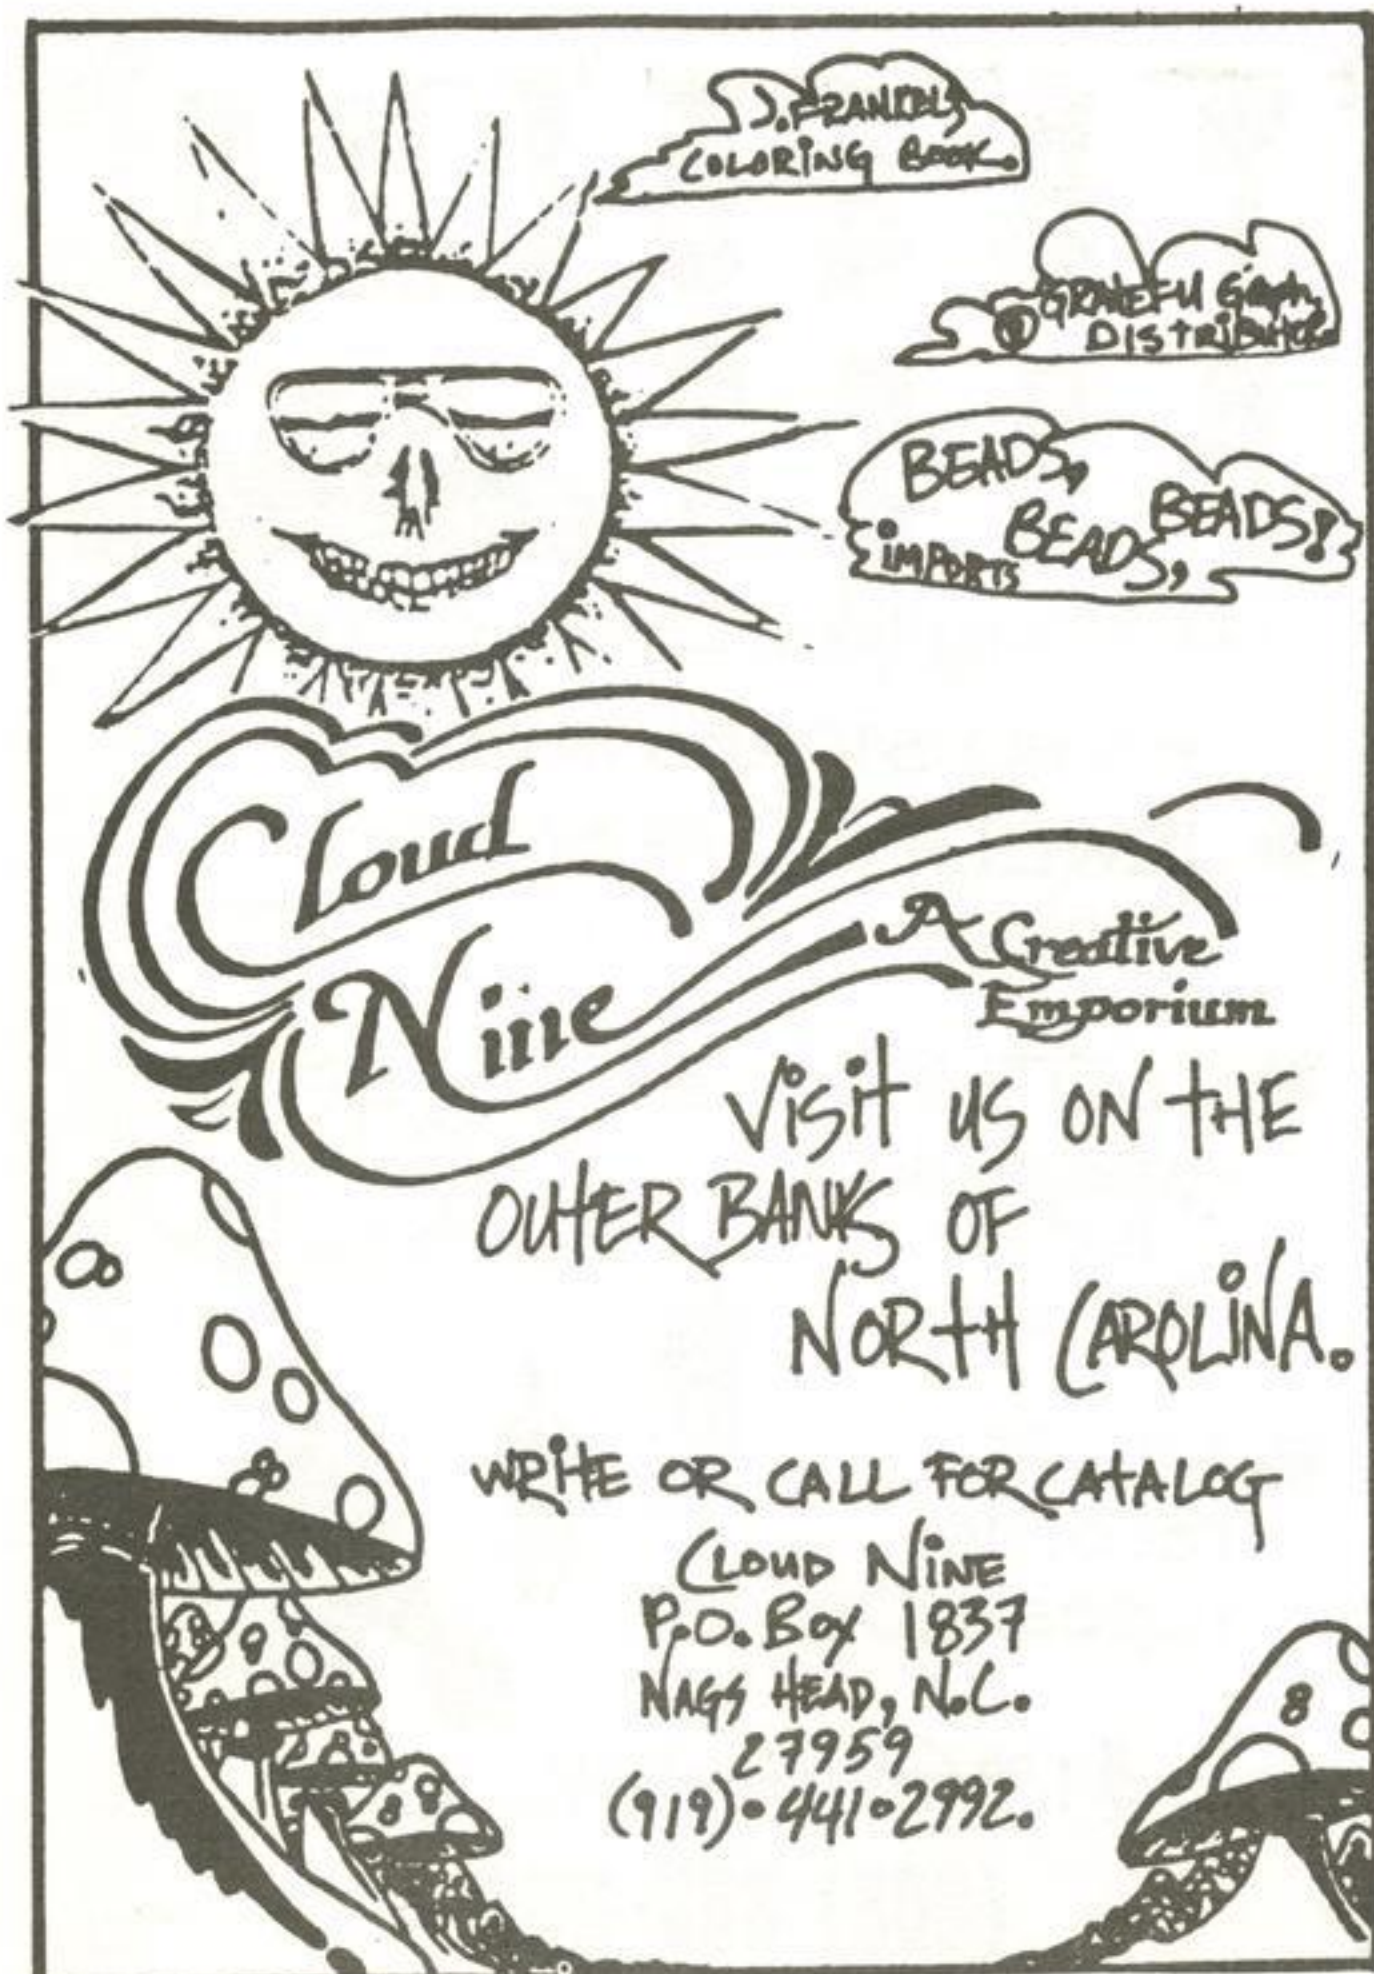 COLORING BOOK.
GRATEFUL
DISTRIBUTOR
BEADS,
BEADS,
BEADS!
IMPORTS
Cloud
Nine
A Creative
Emporium
VISIT US ON THE
OUTER BANKS OF
NORTH CAROLINA.
WRITE OR CALL FOR CATALOG
CLOUD NINE
P.O. BOX 1837
NAGS HEAD, N.C.
27959
(919)•441•2992.